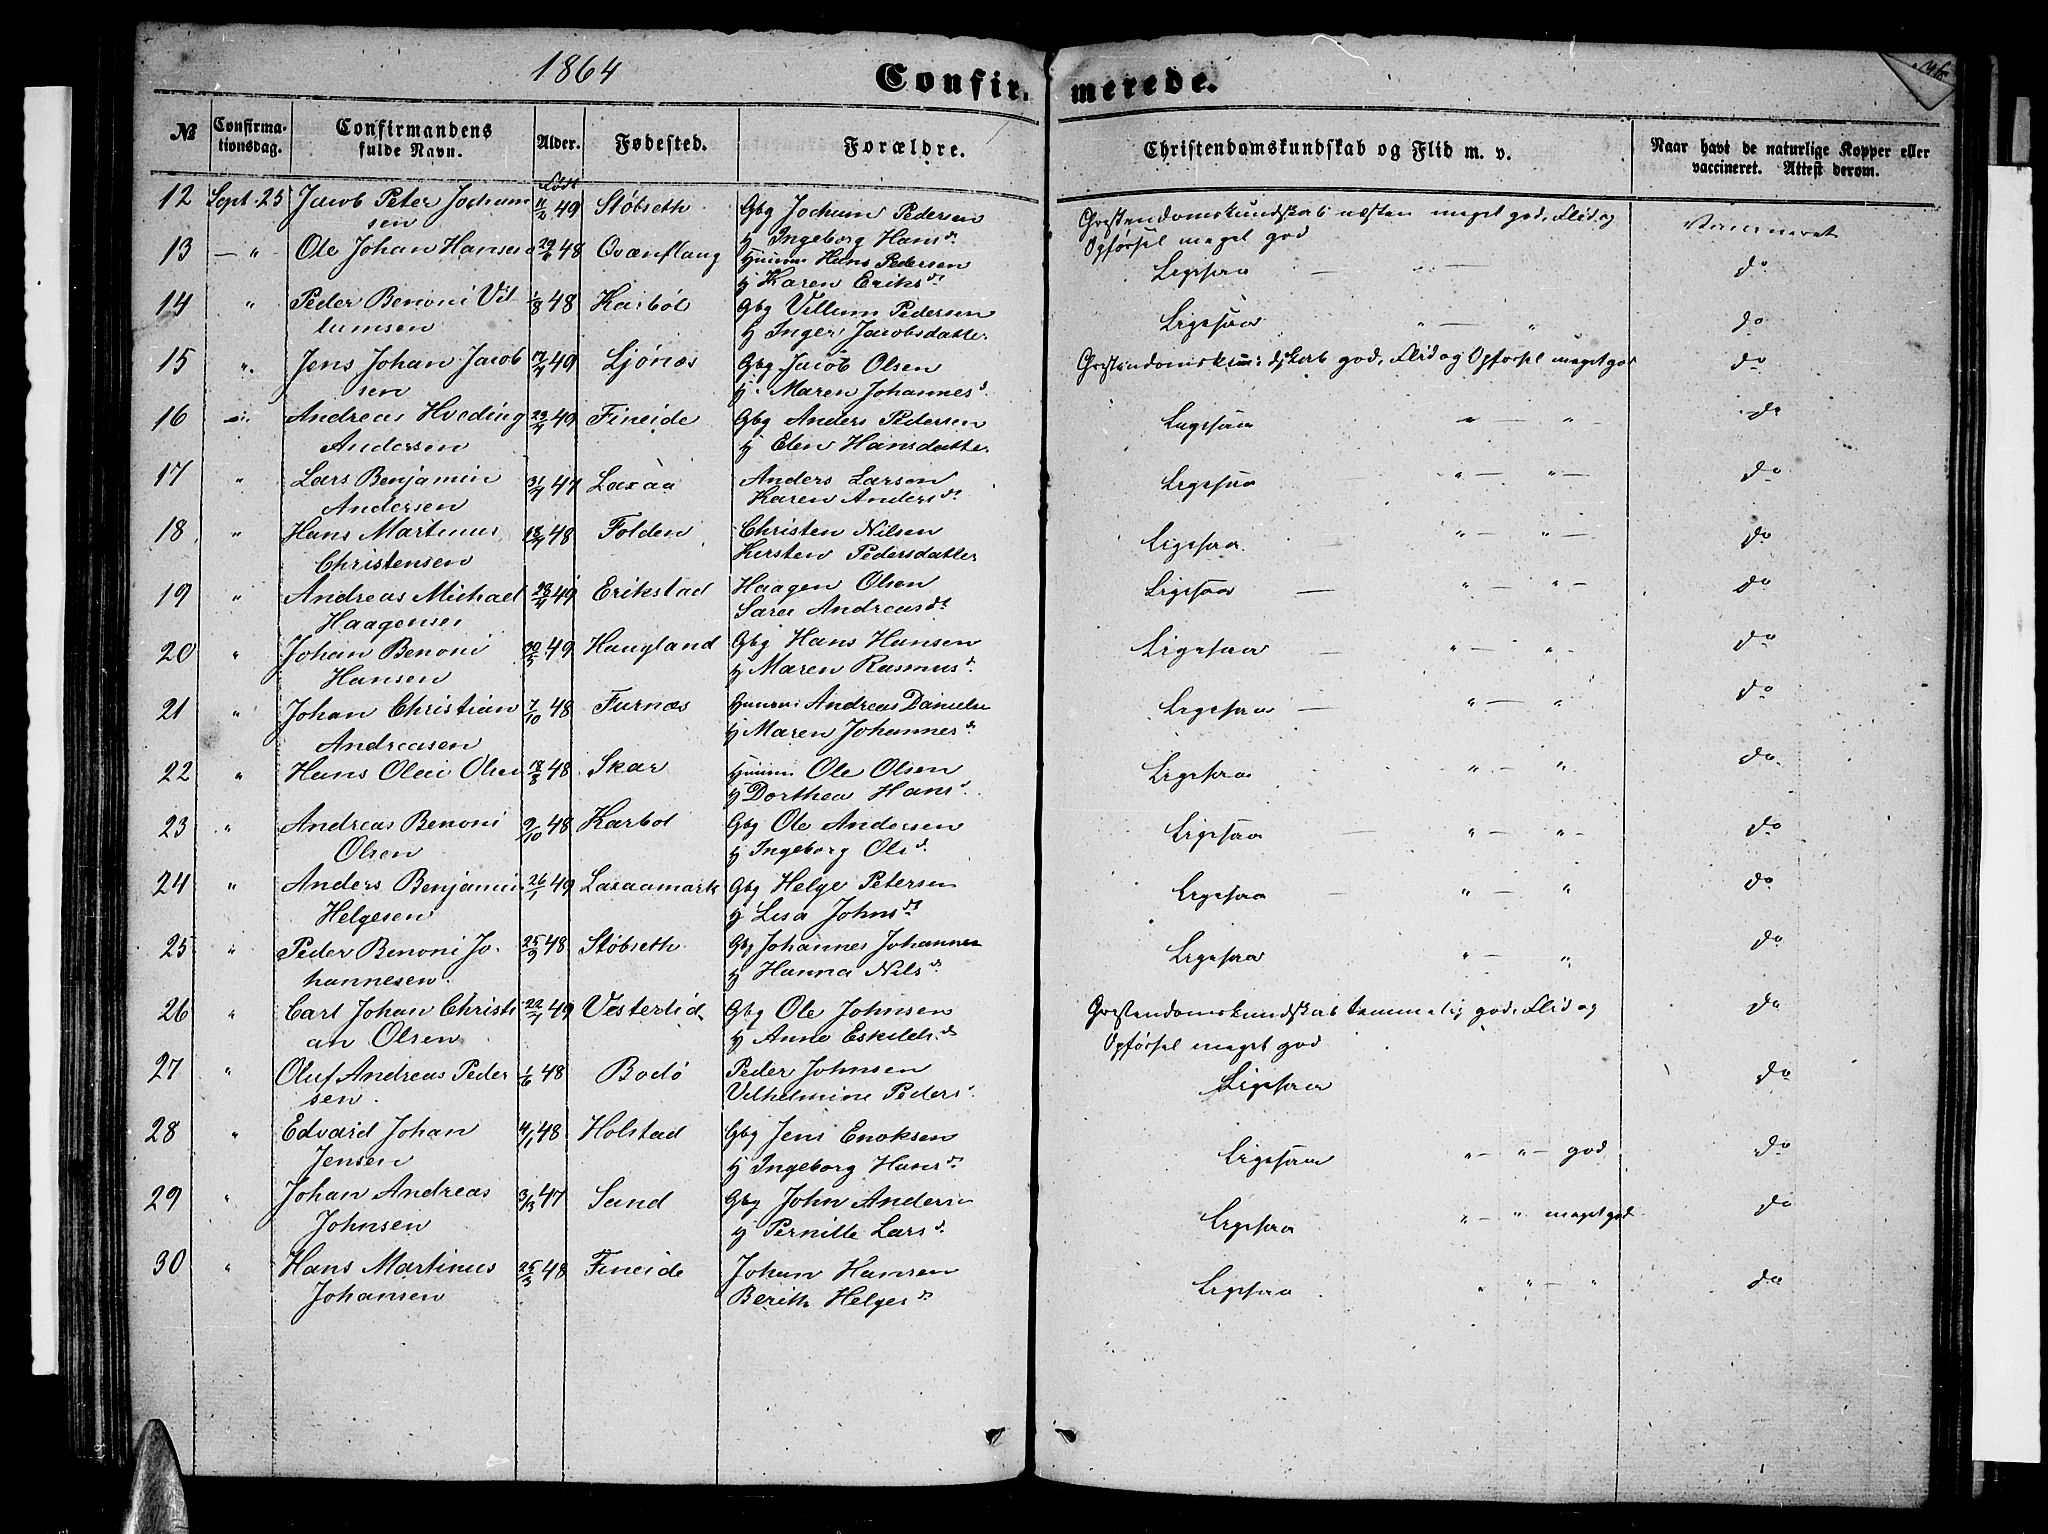 1864
Confir- merede.
№ Confirma- Confirmandens Alder. Fødested. Forældre. Christendomskundskab og Flid m. v. Naar havt de naturlige Kopper eller
tionsdag. fulde Navn. vaccineret. Attest derom.
Født
12 Sept. 25 Jacob Peter Jochum 49 Støbseth Gbg Jochum Pedersen Christendomskundskab næsten meget god, Flid og Vaccineret
sen H Ingeborg Hans dr. Opførsel meget god
13 — " Ole Johan Hansen 29/6 48 Qvænflaug Huusm Hans Pedersen Ligesaa — " — do
H Karen Eriks dr.
14 " Peder Benoni Vil 1/8 48 Karbøl Gbg Villum Pedersen Ligesaa " — " do
lumsen H Inger Jacobsdatter
15 ". Jens Johan Jacob 17/4 49 Ljønæs Gbg Jacob Olsen Christendomskundskab god, Flid og Opførsel meget god do
sen H. Maren Johannes d.
16 " Andreas Hveding 23/4 49 Fineide Gbg Anders Pedersen Ligesaa " — " do
Andersen H Elen Hansdatter
17 " Lars Benjamin 31/7 47 Laxaa Anders Larsen Ligesaa " — " — do
Andersen Karen Anders dr.
18 " Hans Martinus 48 Folden Christen Nilsen Ligesaa. " — " — do
Christensen Kirsten Pedersdatter
19 " Andreas Michael 49 Erikstad Haagen Olsen Ligesaa — " " — do
Haagensen Sara Andreas dr.
20 " Johan Benoni 49 Haugland Gbg Hans Hansen Ligesaa " — " - do
Hansen H Maren Rasmus d.
21 " Johan Christian 7/10 48 Furnæs Huusm Andreas Danielse Ligesaa — " — " do
Andreasen H Maren Johannes d.
22 " Hans Olai Olsen 18/8 48 Skar Huusm Ole Olsen Ligesaa " — " do
H Dorthea Hans d.
23 " Andreas Benoni 9/10 48 Karbol Gbg Ole Andersen Ligesaa — " — " - do
Olsen H Ingeborg Ols d.
24 " Anders Benjamin 26/1 49 Laxaamark Gbg Helge Petersen Ligesaa — " — " do
Helgesen H Lisa Johns dr.
25 " Peder Benoni Jo- 25/9 48 Støbseth Gbg Johannes Johannes Ligesaa " — " do
hannesen. H Hanna Nils d.
26 " Carl Johan Christi 22/4 49 Vesterlid Gbg Ole Johnsen Christendomskundskab temmelig god, Flid og do
an Olsen H Anne Eskilds d. Opførsel meget god
27 " Oluf Andreas Peder 1/6 48 Bodø Peder Johnsen Ligesaa do
sen. Vilhelmine Peders d.
28 " Edvard Johan 4/1 48 Holstad Gbg Jens Enoksen Ligesaa " — " — god do
Jensen H Ingeborg Hans d.
29 " Johan Andreas 3/3 47 Sund Gbg John Anders Ligesaa " — " meget god do
Johnsen H Pernille Lars d.
30 " Hans Martinus 25/3 48 Fineide Johan Hansen Ligesaa. " " — " do
Johansen Berith Helges dr.